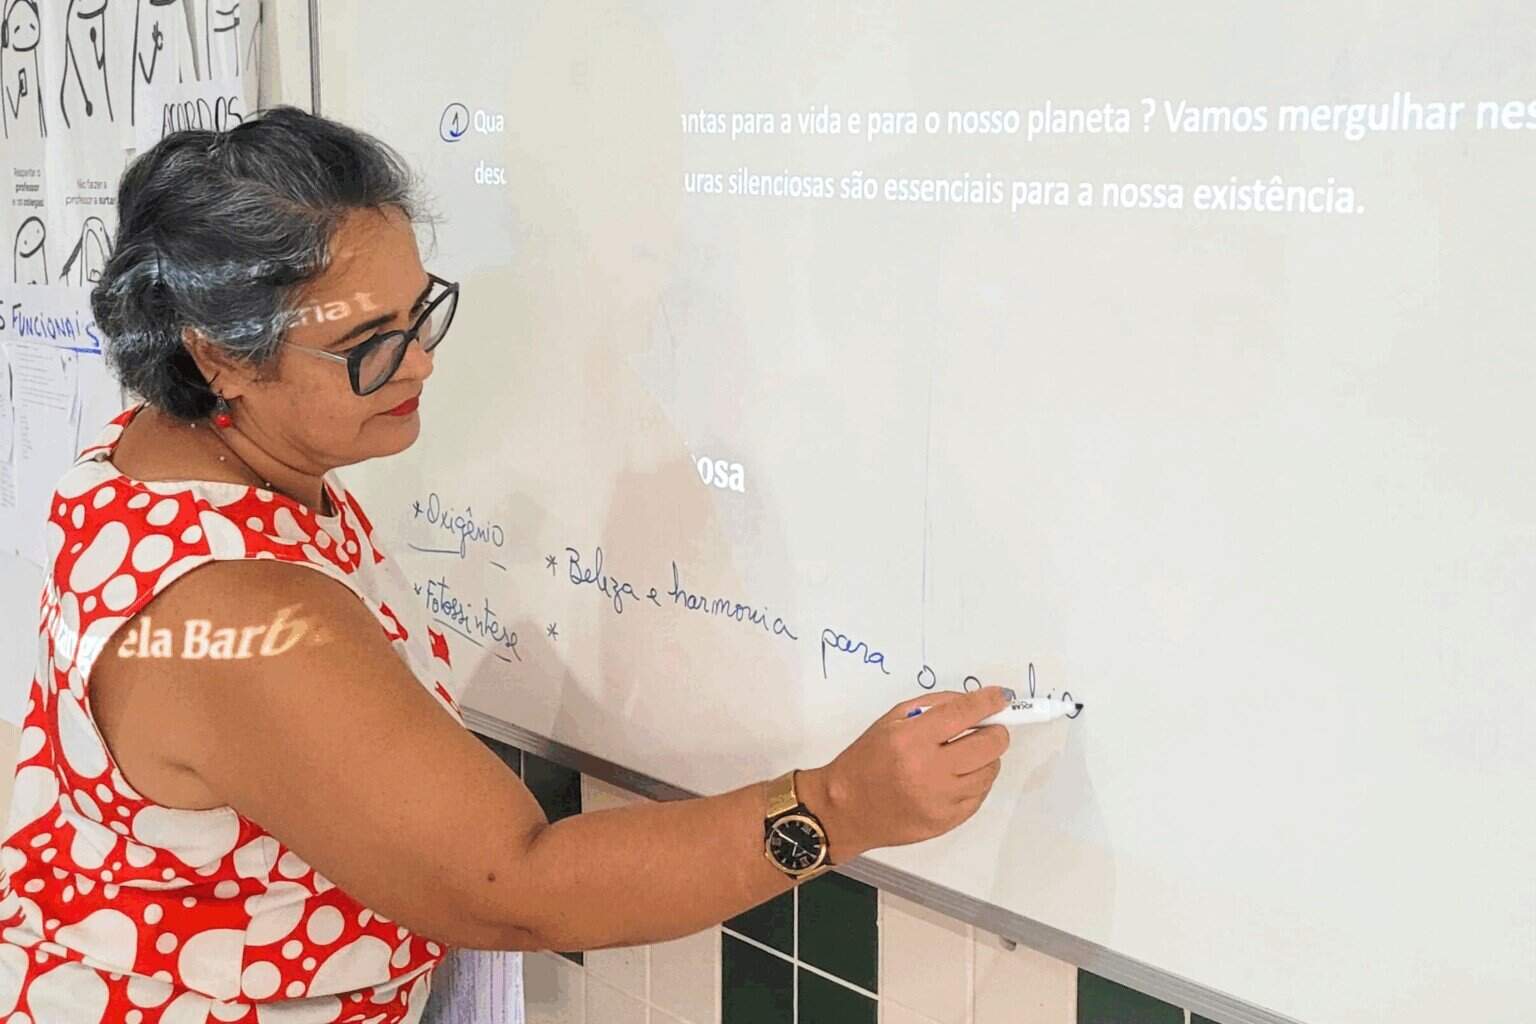 ACORDOS
Respeitar o
professor
e os colegas
Não fazer a
professora surtar
S FUNCIONAIS
1 Qua ntas para a vida e para o nosso planeta ? Vamos mergulhar nes
desc uras silenciosas são essenciais para a nossa existência.
ria t
osa
ela Barb
* Oxigênio
* Fotossíntese
* Beleza e harmonia para o
*